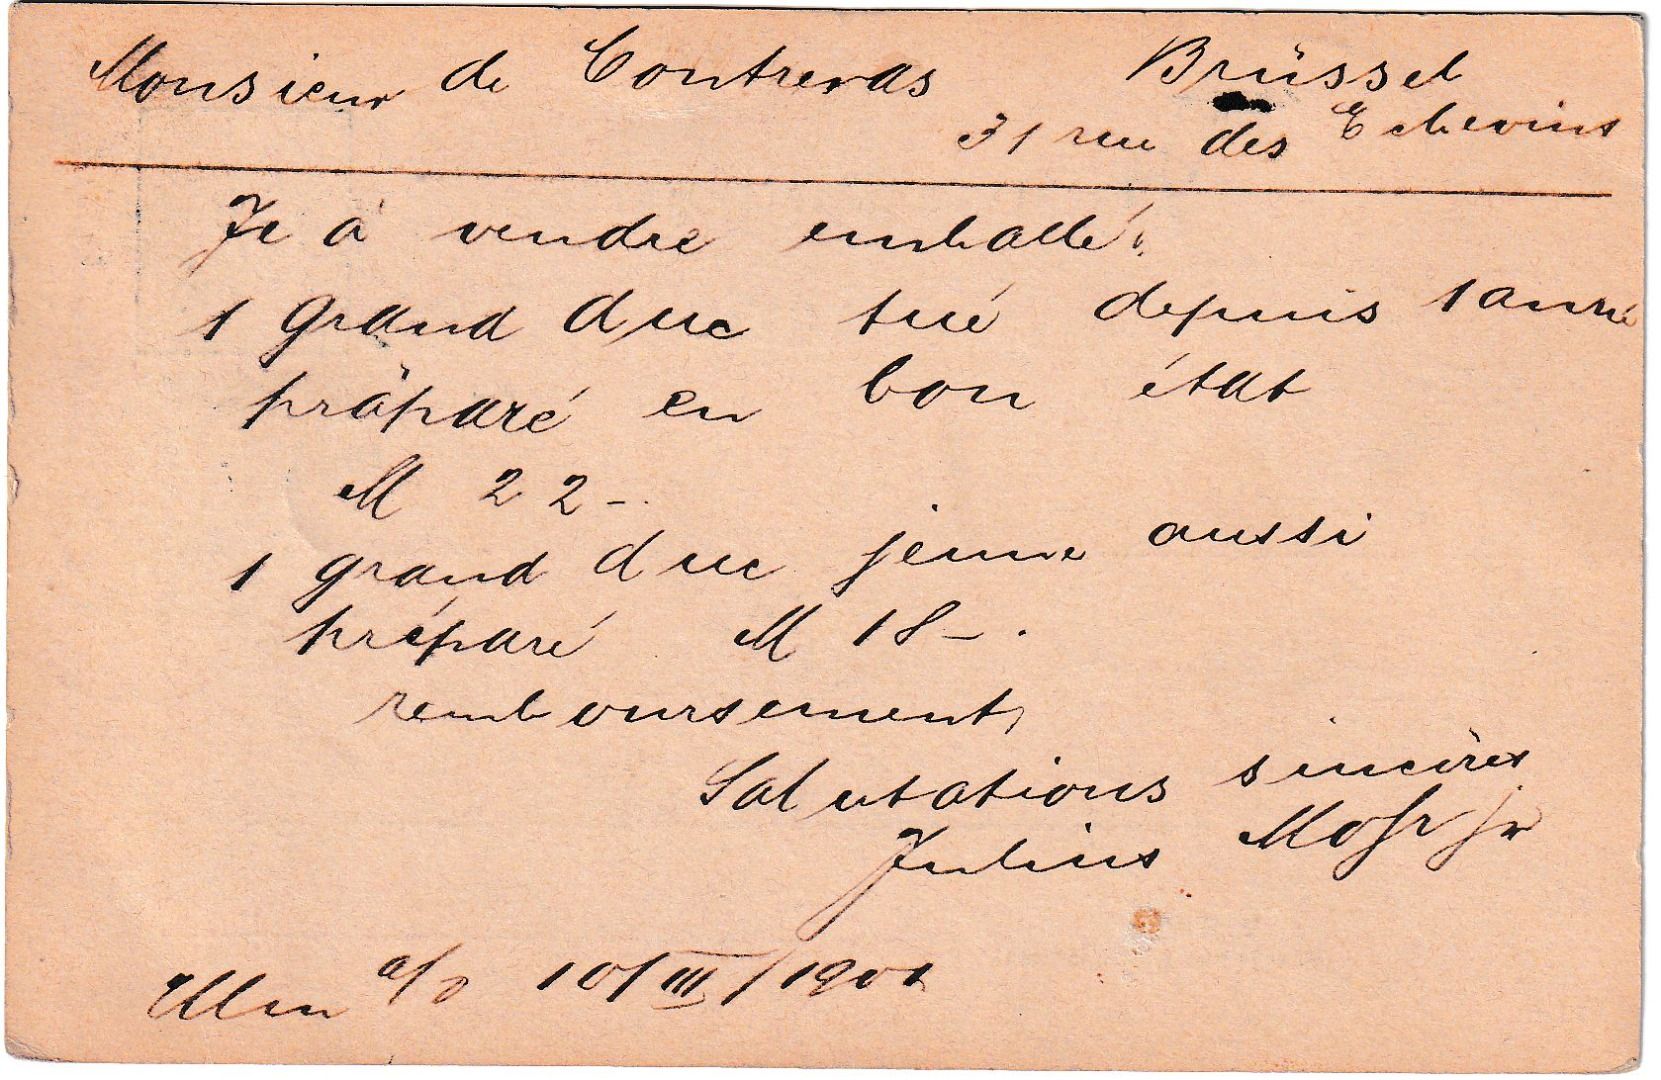 Monsieur de Contreras Brüssel
31 rue des Echevins
Je à vendre emballé:
1 grand duc tué depuis 1 année
präparé en bon état
M 22-.
1 grand duc jeune aussi
préparé M 18-.
remboursement,
Salutations sincères
Julius Mohr jr
Ulm a/D 10/III/1901